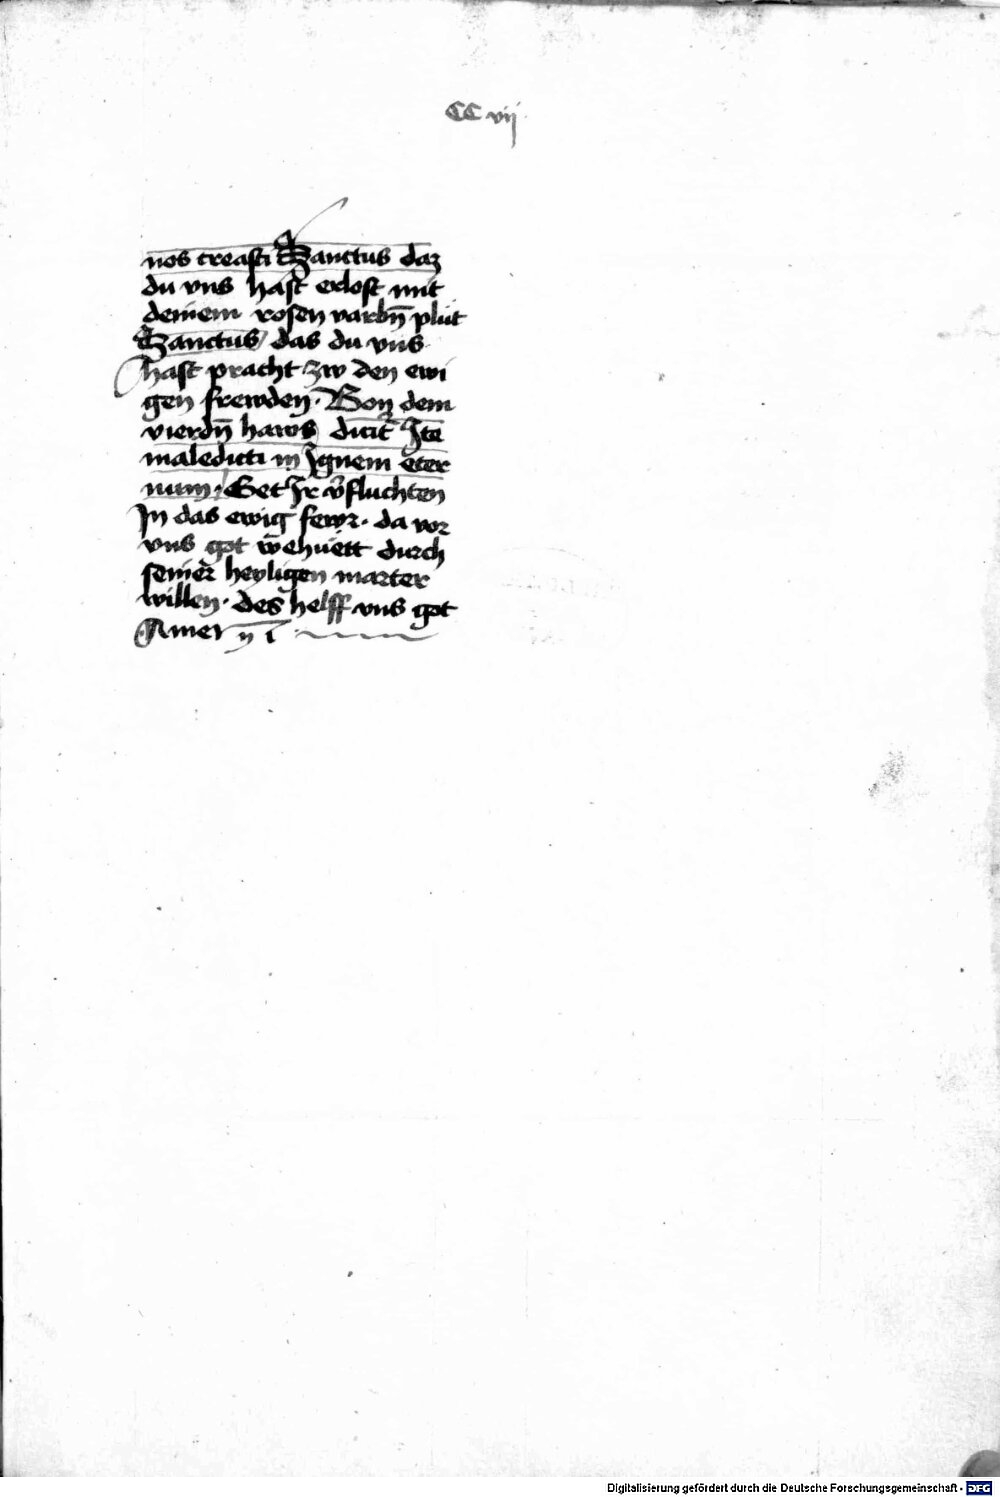 CC vij
nos creasti Sanctus daz
du vns hast erlost mit
deinem rosen varbn̄ plut
Sanctus das du vns
hast pracht zw den ewi
gen frewden · Von dem
vierdn̄ haws dicit Ite
maledicti in Ignem eter
num · Get Ir v̄fluchten
In das ewig fewr · da vor
vns got
durch
seiner heyligen marter
willen · des helff vns got
Amen
Digitalisierung gefördert durch die Deutsche Forschungsgemeinschaft - DFG